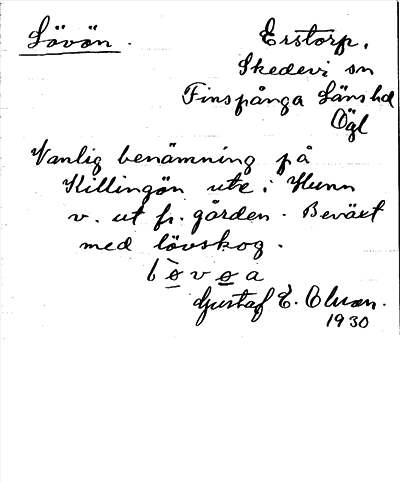 Lövön. Erstorp,
Skedevi sn
Finspånga Läns hd
Ögl
Vanlig benämning på
Killingön ute i Hunn
v. ut fr. gården. Beväxt
med lövskog.
Gustaf E. Olsson.
1930